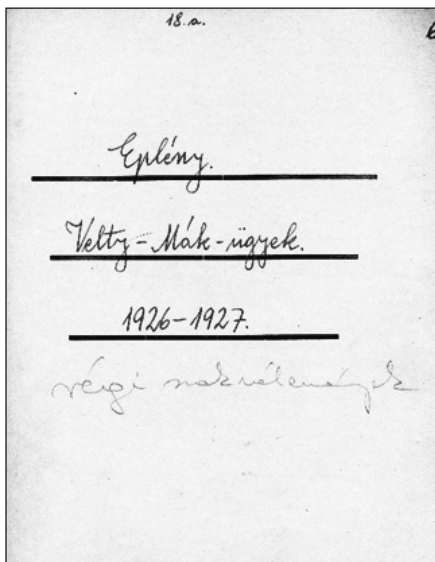 18.a.
6
Eplény.
Velty-Mák-ügyek.
1926-1927.
régi szakvélemények